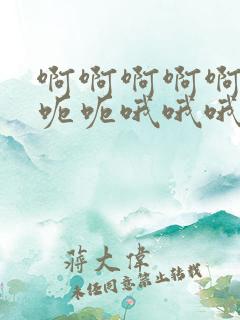 啊啊啊啊啊
呃呃哦哦哦
蒋大伟
未经同意禁止转载